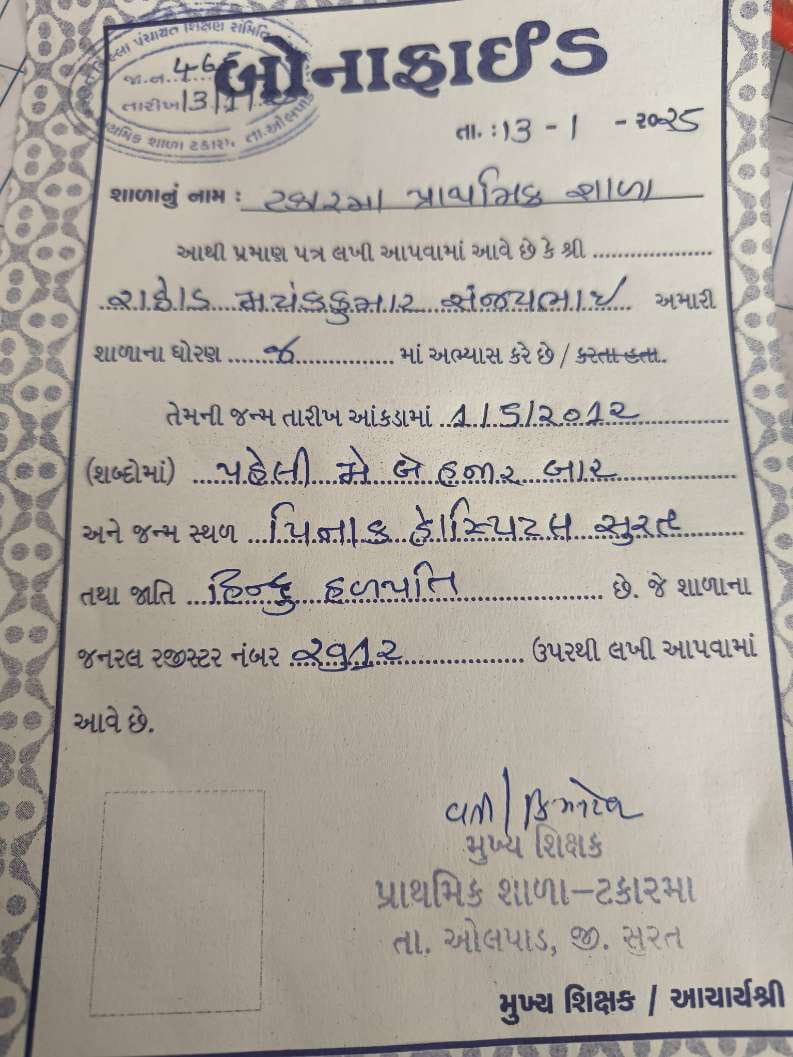 જિલ્લા પંચાયત શિક્ષણ સમિતિ
જા.ન. 46
તારીખ 13/1/
પ્રાથમિક શાળા ટકારમા, તા.ઓલપાડ
બોનાફાઈડ
તા. : 13 - 1 - ૨૦૨5
શાળાનું નામ : ટકારમા પ્રાથમિક શાળા
આથી પ્રમાણ પત્ર લખી આપવામાં આવે છે કે શ્રી ....................
રાઠોડ મયંકકુમાર સંજયભાઈ અમારી
શાળાના ધોરણ ...... ૭ ............... માં અભ્યાસ કરે છે / કરતા હતા.
તેમની જન્મ તારીખ આંકડામાં 1/5/૨૦1૨
(શબ્દોમાં) પહેલી મે બે હજાર બાર
અને જન્મ સ્થળ પિનાક હોસ્પિટલ સુરત
તથા જાતિ હિન્દુ હળપતિ છે. જે શાળાના
જનરલ રજીસ્ટર નંબર ૨૧1૨ ઉપરથી લખી આપવામાં
આવે છે.
વતી
મુખ્ય શિક્ષક
પ્રાથમિક શાળા-ટકારમા
તા. ઓલપાડ, જી. સુરત
મુખ્ય શિક્ષક / આચાર્યશ્રી